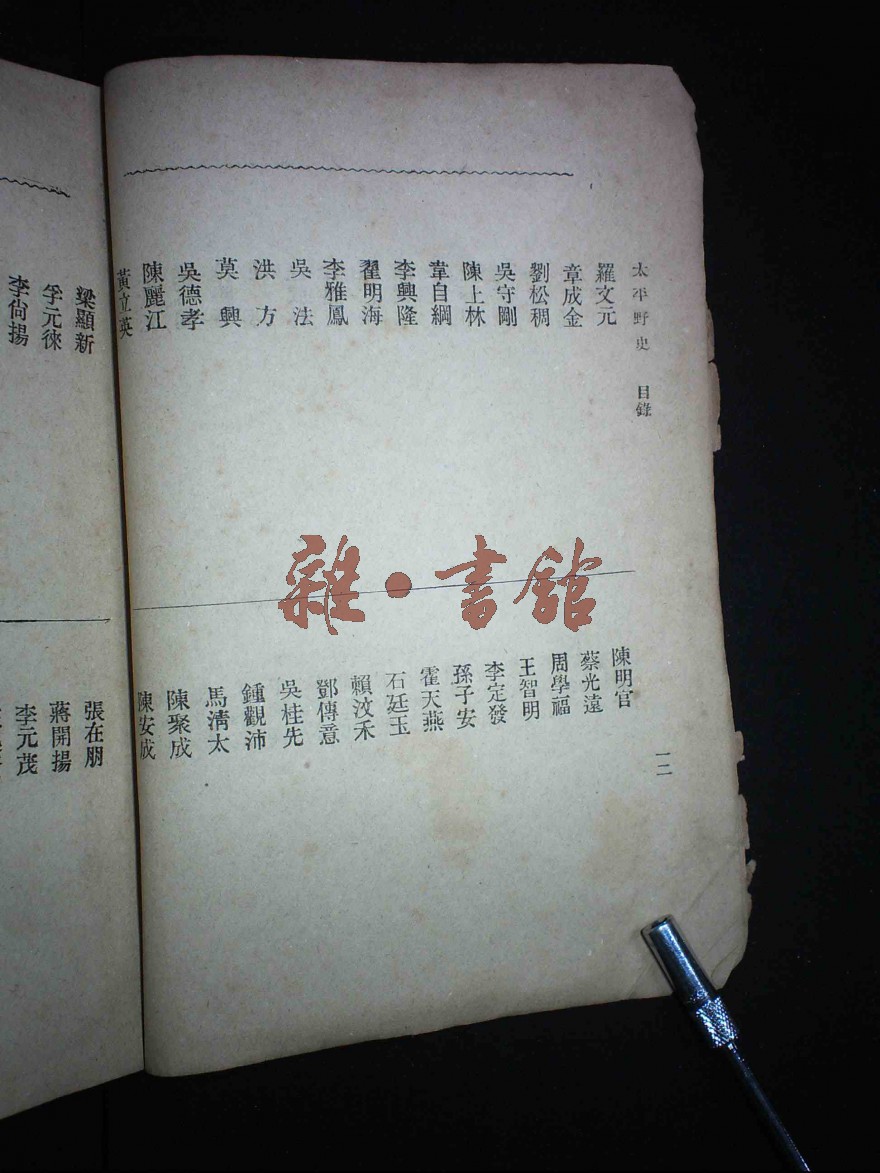 太平野史　目錄
羅文元
章成金
劉松稠
吳守剛
陳上林
韋自綱
李興隆
翟明海
李雅鳳
吳　法
洪　方
莫　興
吳德孝
陳麗江
黃立英
陳明官
蔡光遠
周學蕴
王智明
李定發
孫子安
霍天燕
石廷玉
賴汶禾
鄧傳意
吳桂先
鍾觀沛
馬淸太
陳聚成
陳安成
一二
梁顯新
李尙揚
張在朋
蔣開揚
李元茂
雜・書館